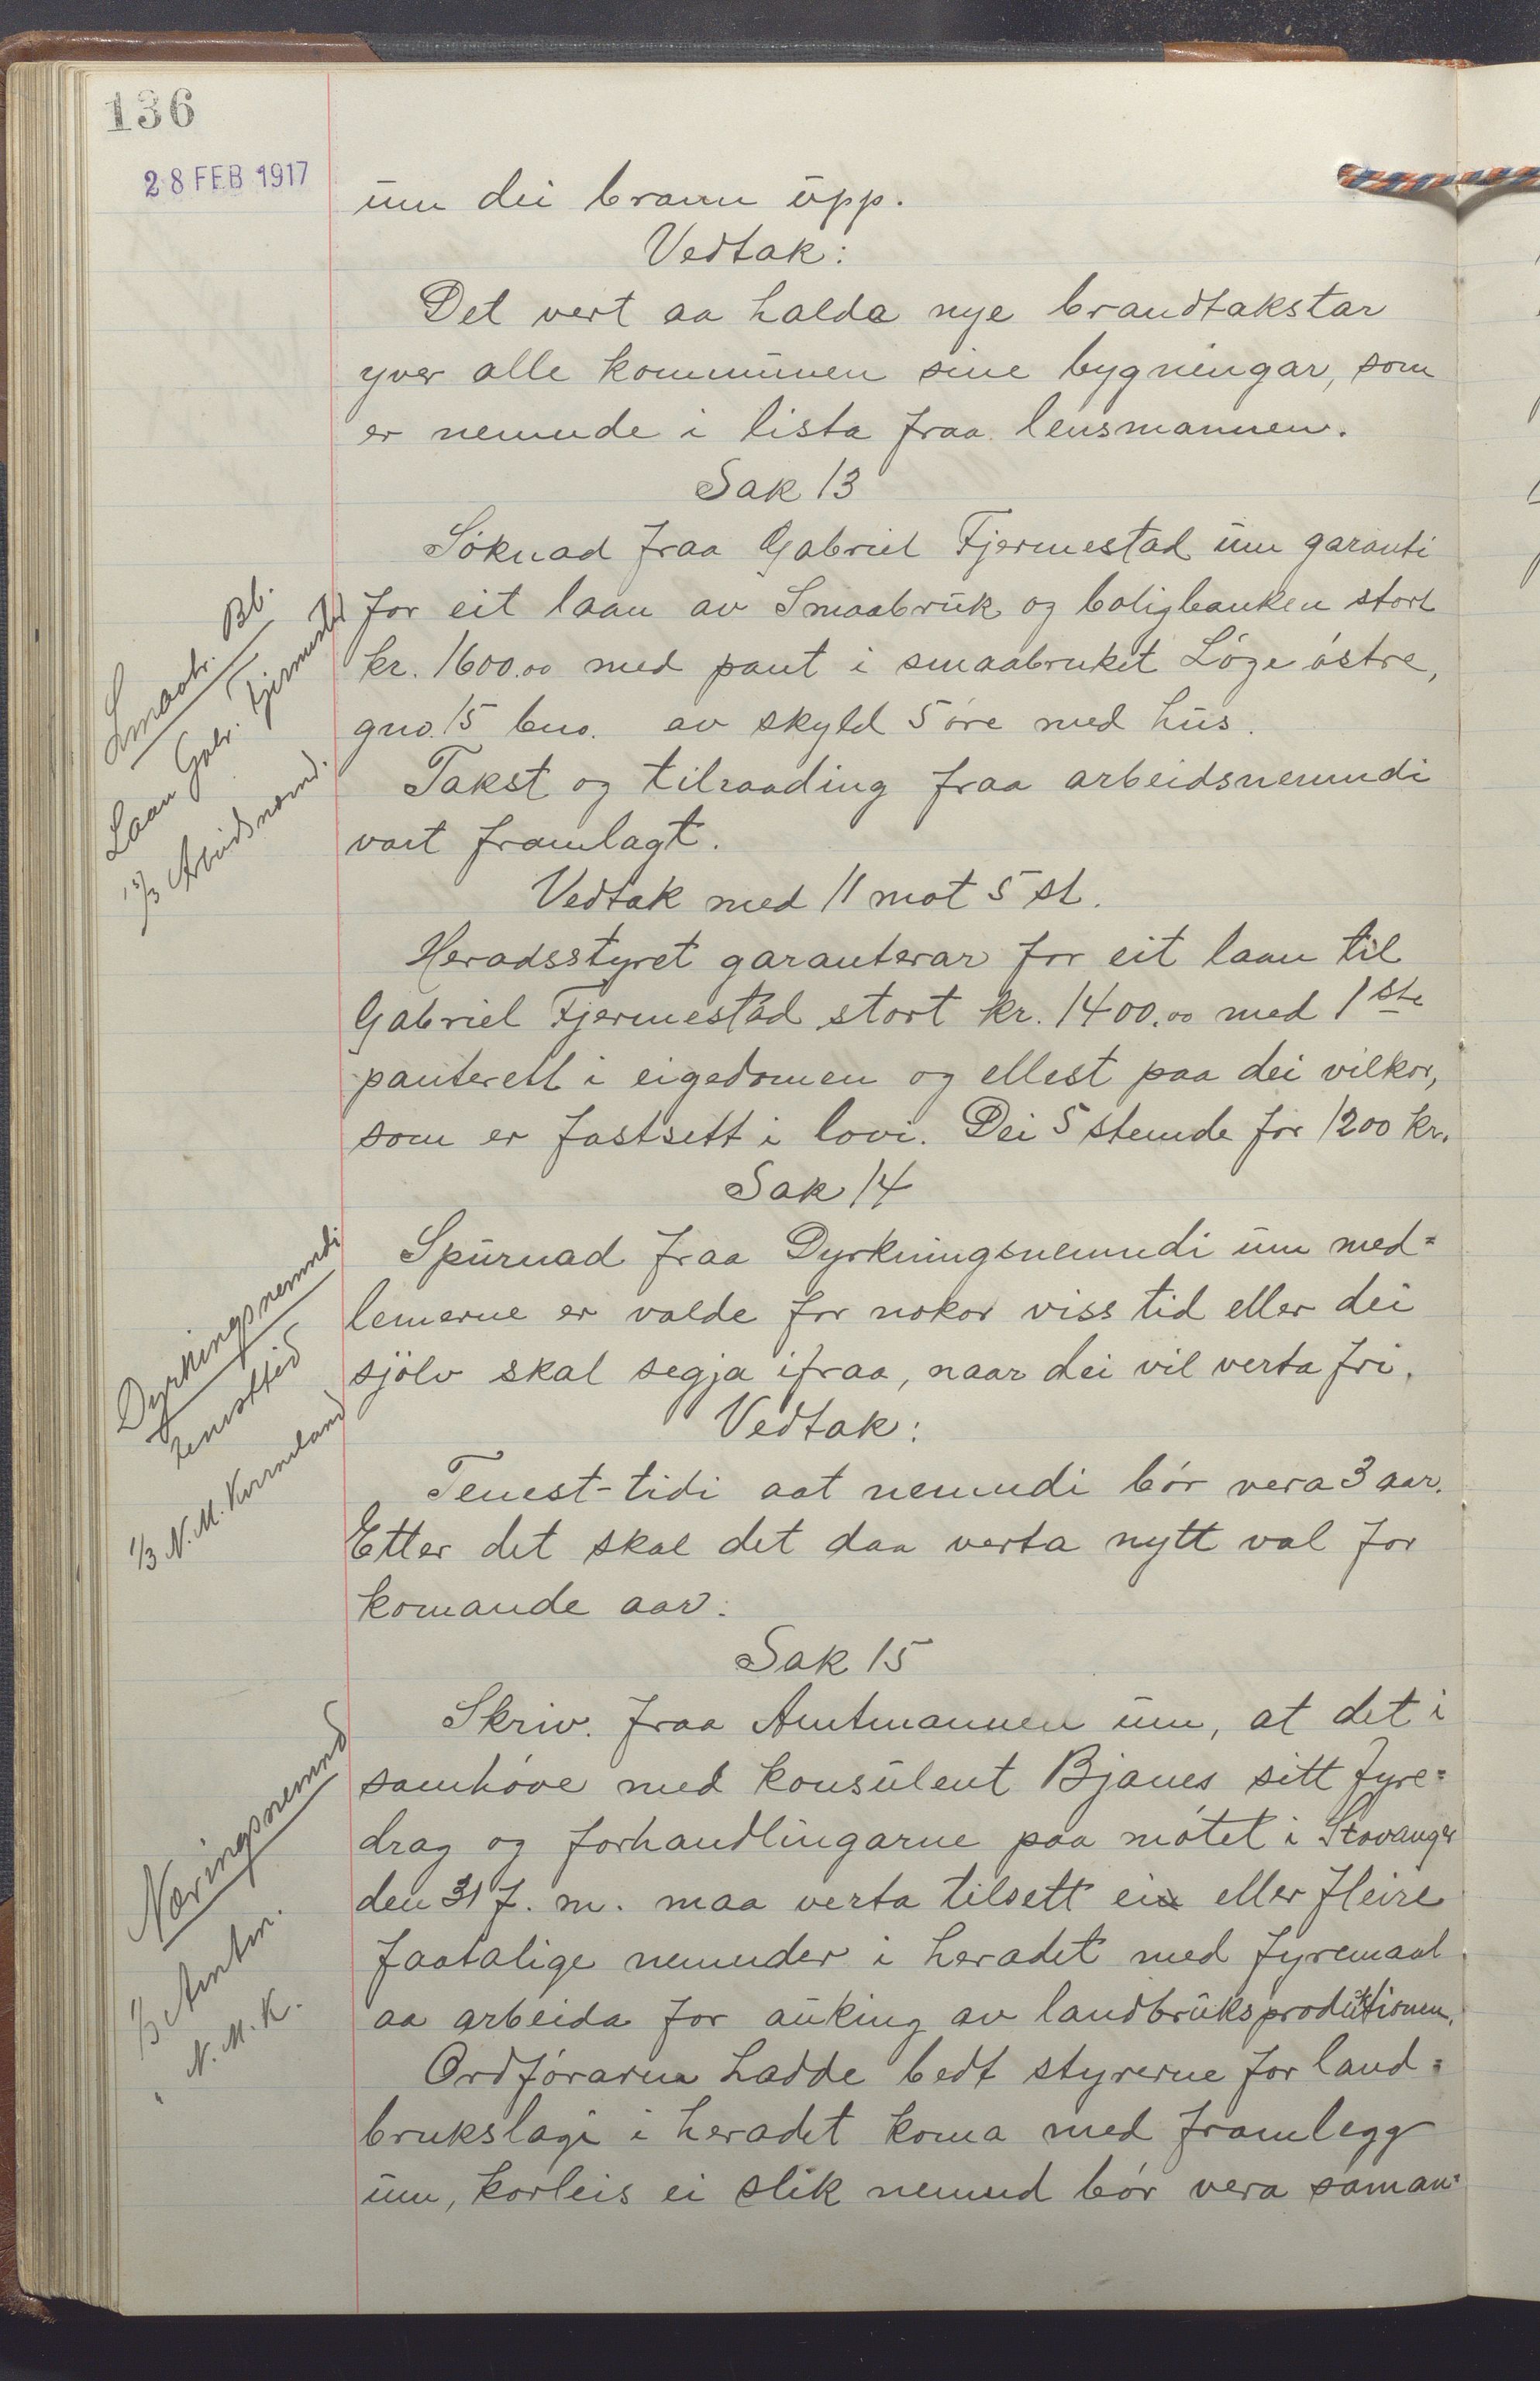 136
28 FEB 1917
um dei brann upp.
Vedtak:
Det vert aa halda nye brandtakstar
yver alle kommunen sine bygningar, som
er nemnde i lista fraa lensmannen.
Sak 13
Söknad fraa Gabriel Fjermestad um garanti
for eit laan av Smaabruk og boligbanken stort
kr. 1600.00 med pant i smaabruket Löge östre,
gno. 15 bno. av skyld 5 öre med hus.
Smaabr. Bb.
Laan Gabr. Fjermestad
13/3 Arbeidsnemd.
Takst og tilraading fraa arbeidsnemndi
vart framlagt.
Vedtak med 11 mot 5 st.
Heradsstyret garanterar for eit laan til
Gabriel Fjermestad stort kr. 1400.00 med 1ste
panterett i eigedomen og ellest paa dei vilkor,
som er fastsett i lovi. Dei 5 stemde for 1200 kr.
Sak 14
Spurnad fraa Dyrkningsnemndi um med=
lemerne er valde for nokor viss tid eller dei
sjölv skal segja ifraa, naar dei vil verta fri.
Dyrkningsnemndi
tenesttid
1/3 N. M. Kverneland
Vedtak:
Tenest-tidi aat nemndi bör vera 3 aar.
Etter det skal det daa verta nytt val for
komande aar.
Sak 15
Skriv. fraa Amtmannen um, at det i
samhöve med konsulent Bjanes sitt fyre=
drag og forhandlingarne paa mötet i Stavanger
den 31 f. m. maa verta tilsett ei eller fleire
faatalige nemnder i heradet med fyremaal
aa arbeida for auking av landbruksproduktionen.
Næringsnemnd
1/3 Amtm.
" N. M. K.
Ordföraren hadde bedt styrerne for land=
brukslagi i heradet koma med framlegg
um, korleis ei slik nemnd bör vera saman=